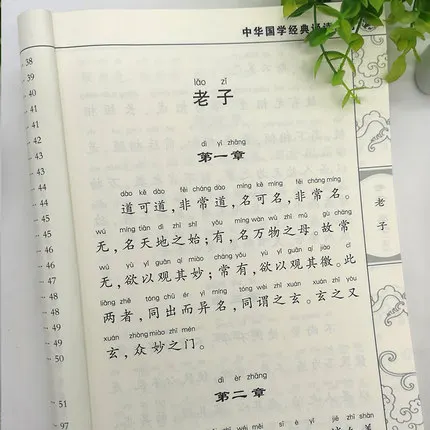 38
38
40
41
41
42
43
43
44
45
45
46
47
47
48
49
49
50
51
97
中华国学经典诵读
lǎo zǐ
老子
dì yī zhāng
第一章
dào kě dào fēi cháng dào míng kě míng fēi cháng míng
道可道，非常道，名可名，非常名。
wú míng tiān dì zhī shǐ yǒu míng wàn wù zhī mǔ gù cháng
无，名天地之始；有，名万物之母。故常
wú yù yǐ guān qí miào cháng yǒu yù yǐ guān qí jiào cǐ
无，欲以观其妙；常有，欲以观其徼。此
liǎng zhě tóng chū ér yì míng tóng wèi zhī xuán xuán zhī yòu
两者，同出而异名，同谓之玄。玄之又
xuán zhòng miào zhī mén
玄，众妙之门。
dì èr zhāng
第二章
老子